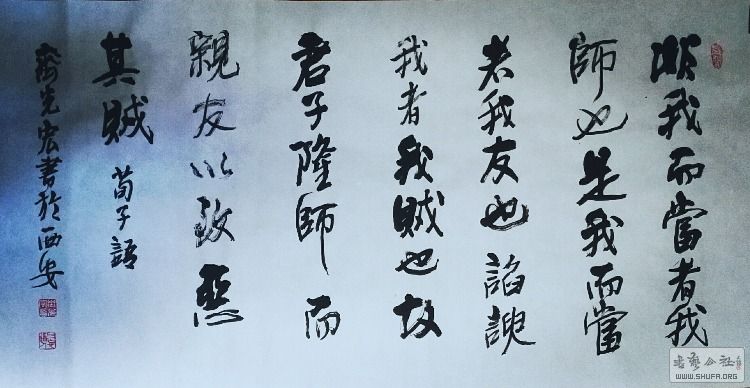 非我而當者我
師也是我而當
者我友也諂諛
我者我賊也故
君子隆師而
親友以致惡
其賊 荀子語
宏書於西安
书艺公社
WWW.SHUFA.ORG